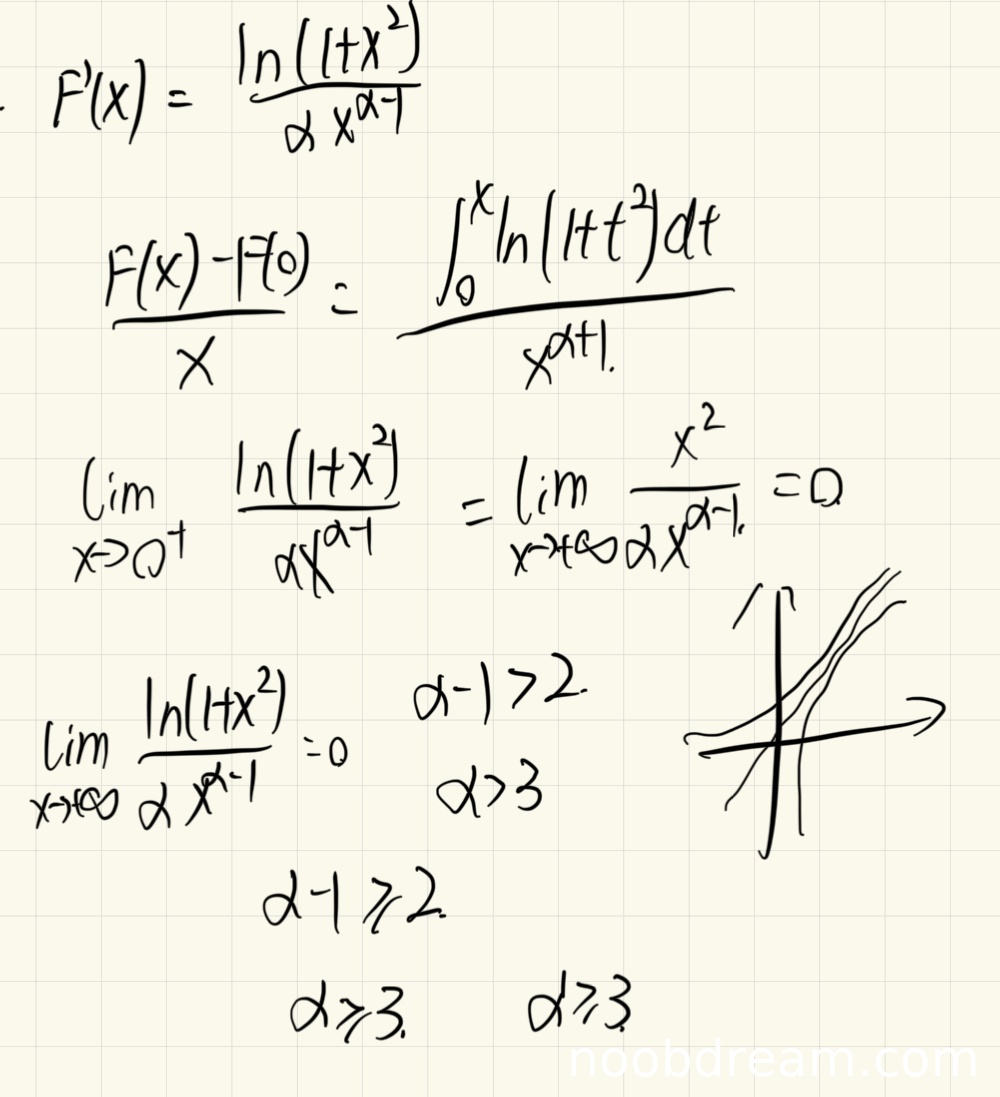 F'(x) = ln(1+x²) / αx^(α-1)
(F(x)-F(0)) / x = ∫₀ˣ ln(1+t²)dt / x^(α+1).
lim x→0⁺ ln(1+x²) / αx^(α-1) = lim x→+∞ x² / αx^(α-1). = 0
lim x→+∞ ln(1+x²) / αx^(α-1) = 0
α-1>2.
α>3
α-1⩾2.
α⩾3. α⩾3.
noobdream.com